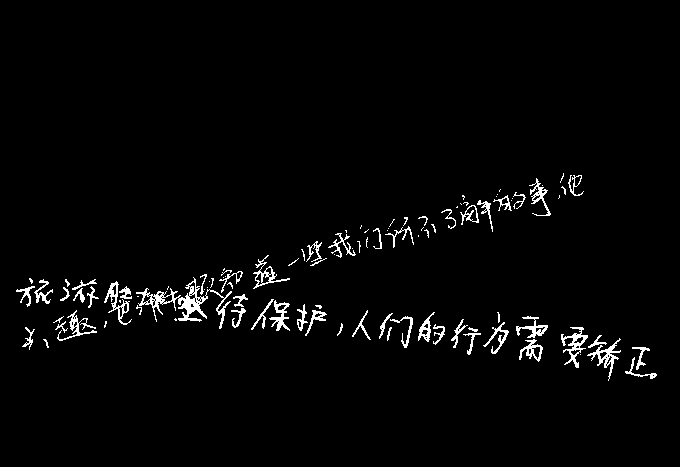 旅游 知道一些我们所不了解的事,他
趣, 待保护,人们的行为需要矫正。